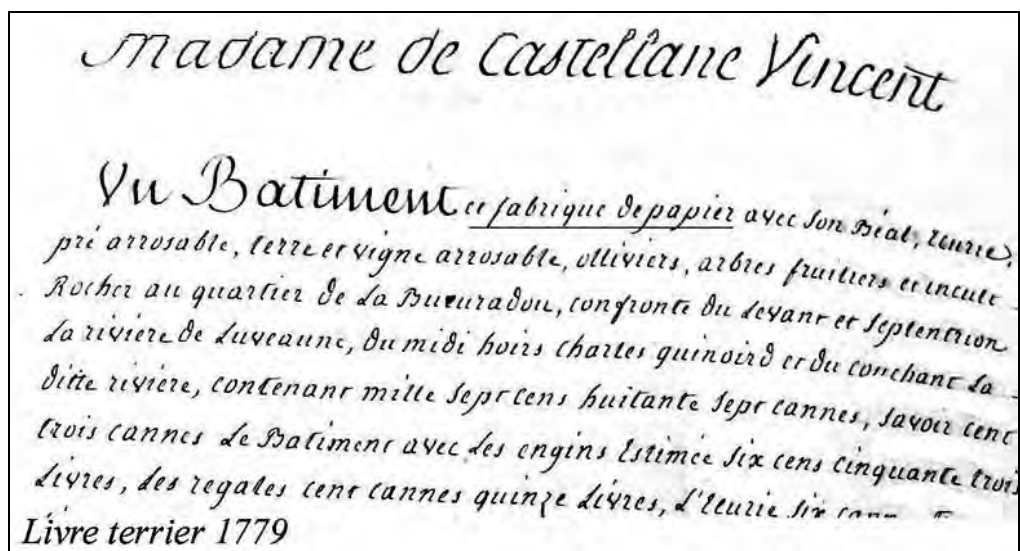 Madame de Castellane Vincent
Un Batiment et fabrique de papier avec son Béal, Ecurie,
pré arrosable, terre et vigne arrosable, olliviers, arbres fruitiers et incult
Rocher au quartier de La Bueuradou, confronte du Levant et Septentrion
La riviere de Luveaune, du midi hoirs Charles quinoird et du couchant La
ditte riviere, contenant mille sept cens huitante sept cannes, savoir cent
trois cannes Le Batiment avec Les engins Estimée six cens cinquante trois
Livres, Les regales cent cannes quinze Livres, L'Ecurie six
Livre terrier 1779